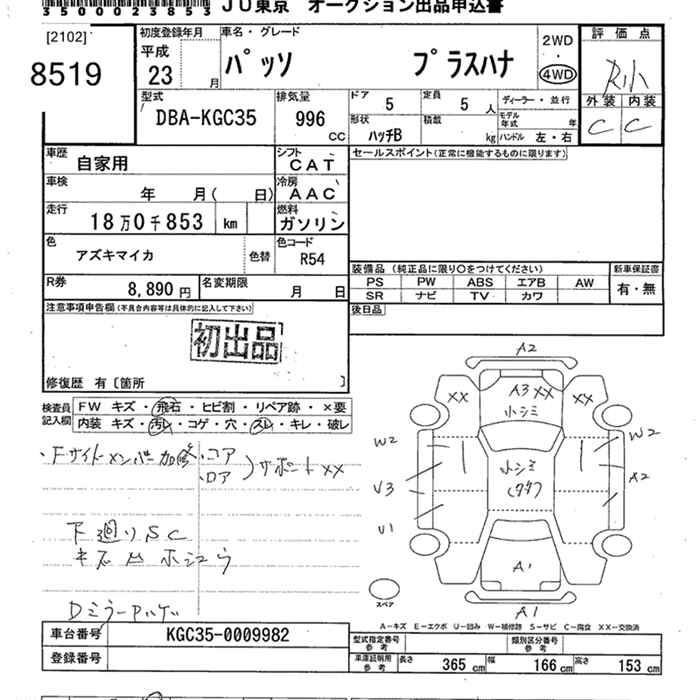 3500023853 JU東京 オークション出品申込書
[2102]
8519
初度登録年月
平成
23 月
車名・グレード
パッソ プラスハナ
2WD
・
4WD
評価点
R小
外装 内装
C C
型式
DBA-KGC35
排気量
996 CC
ドア 5
定員 5 人
ディーラー・並行
形状 ハッチB
積載 kg
モデル年式 年
ハンドル 左・右
車歴 自家用
シフト CAT
セールスポイント(正常に機能するものに限ります)
車検 年 月( 日)
冷房 AAC
走行 18万0千853 km
燃料 ガソリン
色 アズキマイカ 色替
色コード R54
装備品 (純正品に限り〇をつけてください)
新車保証書
PS PW ABS エアB AW
有・無
SR ナビ TV カワ
R券 8,890円
名変期限 月 日
後日品
注意事項申告欄(不具合内容等は具体的に記入して下さい)
初出品
修復歴 有〔箇所 〕
検査員記入欄
FW キズ・飛石・ヒビ割・リペア跡・×要
内装 キズ・汚レ・コゲ・穴・スレ・キレ・破レ
・Fサイドメンバー加修
・コア
・ロア
サポートXX
下廻りSC
キズ凹小シュウ
Dミラー
A2
XX A3 XX XX
小シミ
W2 W2
小シミ
V3 A2
U1
A1
スペア
A1
A-キズ E-エクボ U-凹み W-補修跡 S-サビ C-腐食 XX-交換済
車台番号 KGC35-0009982
登録番号
型式指定番号 参考
類別区分番号 参考
車庫証明用 参考
長さ 365 cm 幅 166 cm 高さ 153 cm